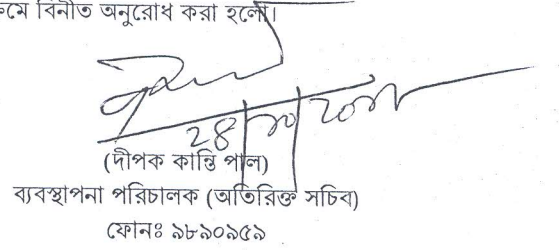 বিনীত অনুরোধ করা হলো।
(দীপক কান্তি পাল)
ব্যবস্থাপনা পরিচালক (অতিরিক্ত সচিব)
ফোনঃ ৯৮৯০৯৫৯